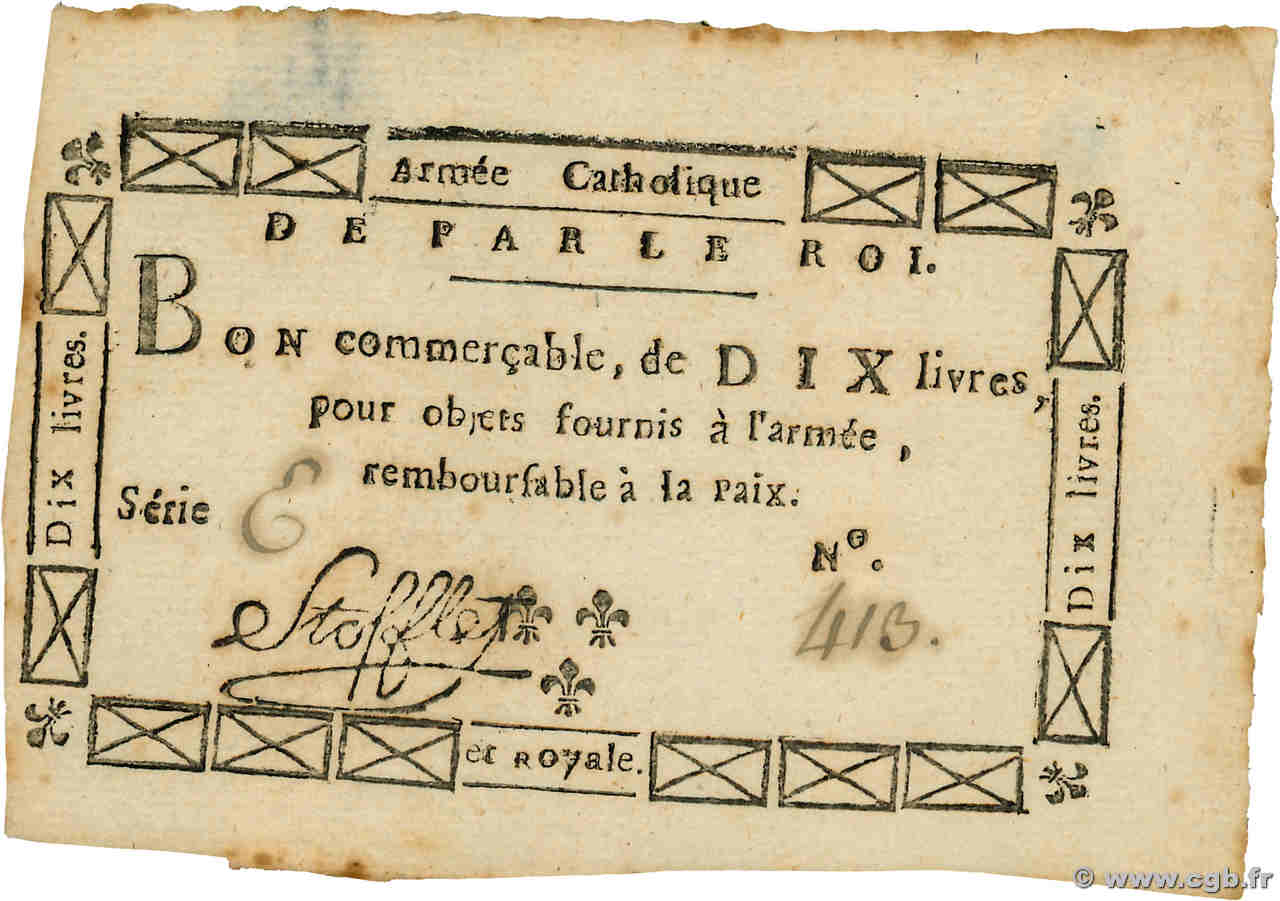 Armée Catholique
DE PAR LE ROI.
BON commerçable, de DIX livres,
pour objets fournis à l'armée,
remboursable à la paix.
Série E
Nº.
413.
Stofflet
et Royale.
Dix livres.
Dix livres.
© www.cgb.fr